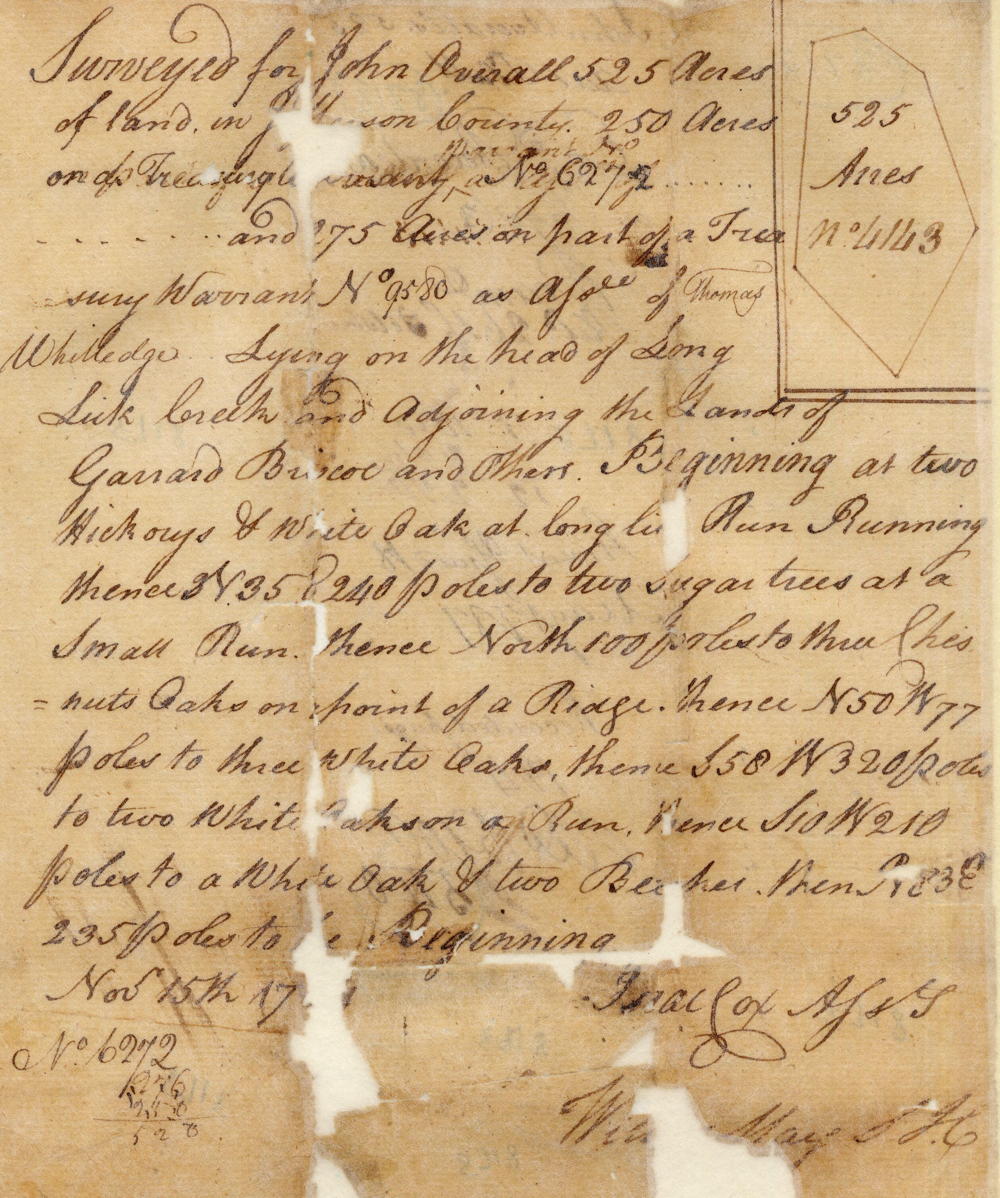 Surveyed for John Overall 525 Acres
of land, in Jefferson County. 250 Acres
Warrant No
on pt Treasury No 6272 . . . . . . .
. . . . . . . . and 275 Acres on part of a Trea
=sury Warrant No 9580 as Assee of Thomas
Whitledge .. Lying on the head of Long
Lick Creek and Adjoining the Lands of
Garrard Briscoe and Others. Beginning at two
Hickorys & White Oak at long lic Run Running
thence N35 E 240 poles to two sugar trees at a
Small Run. thence North 100 poles to three Ches
=nuts Oaks on point of a Ridge. thence N50 W 77
poles to three White Oaks, thence S58 W 320 poles
to two White Oaks on a Run. thence S10 W 210
poles to a White Oak & two Beeches. then 83 E
235 poles to the Beginning
Novr 15th 17
Isaac Cox Asst S
Will May S J C
No 6272
250
520
525
Acres
No 4143